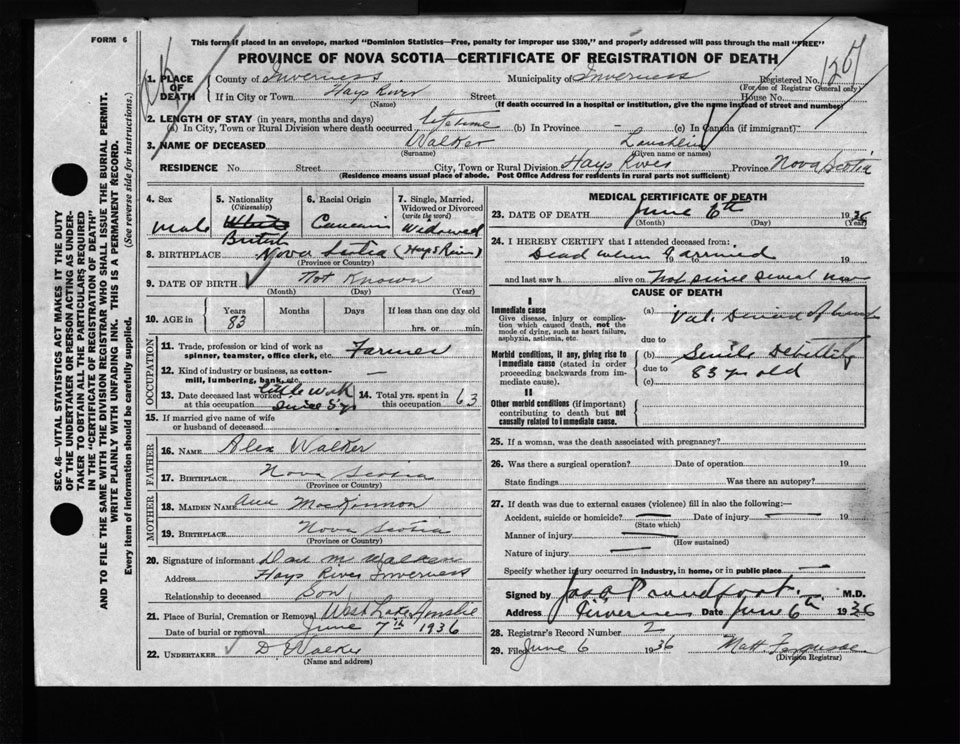 FORM 6
This form if placed in an envelope, marked "Dominion Statistics—Free, penalty for improper use $300," and properly addressed will pass through the mail "FREE"
PROVINCE OF NOVA SCOTIA—CERTIFICATE OF REGISTRATION OF DEATH
1. PLACE OF DEATH County of Inverness Municipality of Inverness Registered No. 1207
(For use of Registrar General only)
If in City or Town Hays River Street House No.
(Name) (If death occurred in a hospital or institution, give the name instead of street and number)
2. LENGTH OF STAY (in years, months and days)
(a) In City, Town or Rural Division where death occurred life time (b) In Province - (c) In Canada (if immigrant) -
3. NAME OF DECEASED Walker Lauchlin
(Surname) (Given name or names)
RESIDENCE No. Street City, Town or Rural Division Hays River Province Nova Scotia
(Residence means usual place of abode. Post Office Address for residents in rural parts not sufficient)
4. Sex 5. Nationality (Citizenship) 6. Racial Origin 7. Single, Married, Widowed or Divorced (write the word)
Male White British Caucasin Widowed
8. BIRTHPLACE Nova Scotia (Hays River)
(Province or Country)
9. DATE OF BIRTH Not Known
(Month) (Day) (Year)
10. AGE in Years Months Days If less than one day
83 hrs. or min.
OCCUPATION
11. Trade, profession or kind of work as spinner, teamster, office clerk, etc. Farmer
12. Kind of industry or business, as cotton-mill, lumbering, bank, etc. —
13. Date deceased last worked at this occupation little work since 5 yrs 14. Total yrs. spent in this occupation 63
15. If married give name of wife or husband of deceased
FATHER
16. NAME Alex Walker
17. BIRTHPLACE Nova Scotia
(Province or Country)
MOTHER
18. MAIDEN NAME Ann MacKinnon
19. BIRTHPLACE Nova Scotia
(Province or Country)
20. Signature of informant Dan M Walker
Address Hays River Inverness
Relationship to deceased Son
21. Place of Burial, Cremation or Removal West Lake Ainslie
Date of burial or removal June 7th 1936
22. UNDERTAKER D. Walker
(Name and address)
MEDICAL CERTIFICATE OF DEATH
23. DATE OF DEATH June 6th 1936
(Month) (Day)
24. I HEREBY CERTIFY that I attended deceased from:
Dead when I arrived 19
and last saw h alive on Not since several
CAUSE OF DEATH
I
Immediate cause
Give disease, injury or complication which caused death, not the mode of dying, such as heart failure, asphyxia, asthenia, etc.
(a) Val. Disease of heart
due to
Morbid conditions, if any, giving rise to immediate cause (stated in order proceeding backwards from immediate cause).
(b) Senile Debility
due to 83 yrs old
(c)
II
Other morbid conditions (if important) contributing to death but not causally related to immediate cause.
25. If a woman, was the death associated with pregnancy?
26. Was there a surgical operation? Date of operation 19
State findings Was there an autopsy?
27. If death was due to external causes (violence) fill in also the following:—
Accident, suicide or homicide? — Date of injury — 19
(State which)
Manner of injury —
(How sustained)
Nature of injury —
Specify whether injury occurred in industry, in home, or in public place —
Signed by Proudfoot M.D.
Address Inverness Date June 6th 1936
28. Registrar's Record Number 2
29. Filed June 6 1936 Matt Ferguson
(Division Registrar)
SEC. 46—VITAL STATISTICS ACT MAKES IT THE DUTY OF THE UNDERTAKER OR PERSON ACTING AS UNDERTAKER TO OBTAIN ALL THE PARTICULARS REQUIRED IN THE "CERTIFICATE OF REGISTRATION OF DEATH" AND TO FILE THE SAME WITH THE DIVISION REGISTRAR WHO SHALL ISSUE THE BURIAL PERMIT.
WRITE PLAINLY WITH UNFADING INK. THIS IS A PERMANENT RECORD.
Every item of information should be carefully supplied. (See reverse side for instructions.)